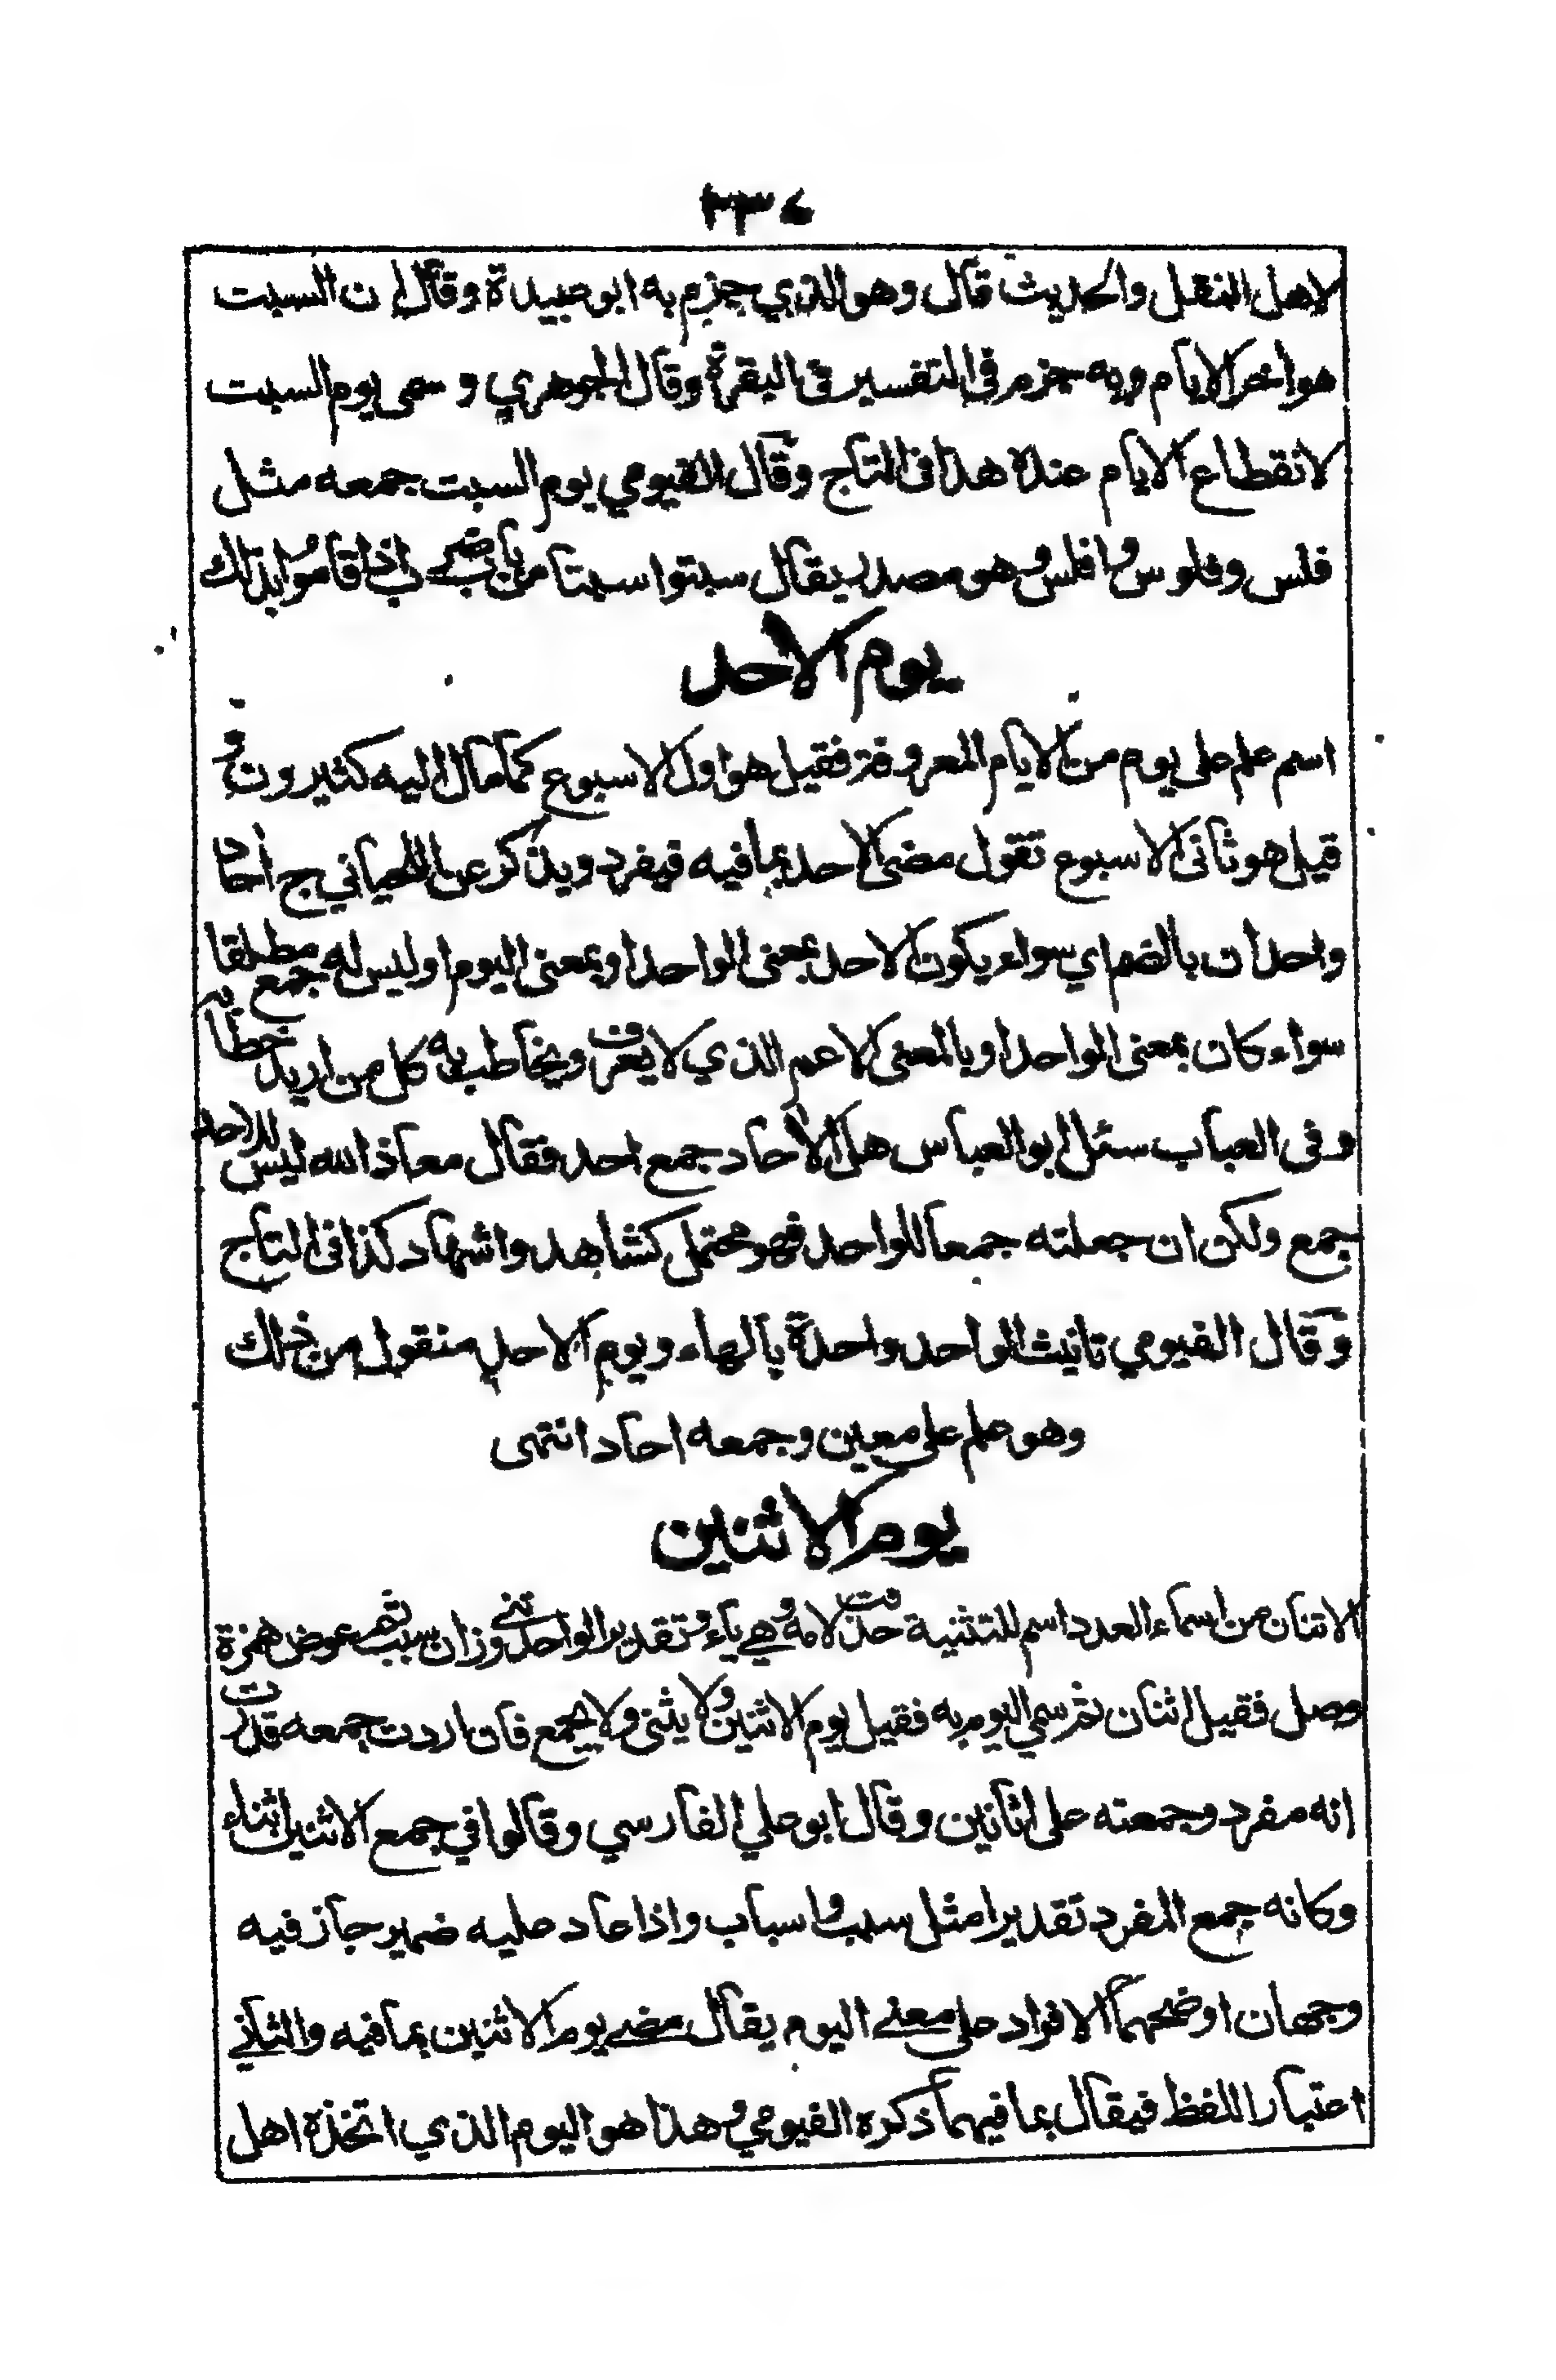 ٢٣٤
لاهل النقل والحديث قال وهو الذي جزم به ابو عبيدة وقال ان السبت
هو اخر الايام وبه جزم في التفسير في البقرة وقال الجوهري وسمى يوم السبت
لانقطاع الايام عنده هذا في التاج وقال الفيومي يوم السبت جمعه مثل
فلس وفلوس وافلس وهو مصدر يقال سبتوا سبتا من باب ضرب اذا قاموا بذلك
يوم الاحد
اسم علم على يوم من الايام المعروفة فقيل هو اول الاسبوع كما مال اليه كثيرون و
قيل هو ثاني الاسبوع تقول مضى الاحد بما فيه فيفرد ويذكر عن اللحياني ج احاد
واحدان بالضم اي سواء يكون الاحد بمعنى الواحد او بمعنى اليوم او ليس له جمع مطلقا
سواء كان بمعنى الواحد او بالمعنى الاعم الذي لا يعرف ويخاطب به كل من اريد خطابه
وفي العباب سئل ابو العباس هل الاحاد جمع احد فقال معاذ الله ليس للاحد
جمع ولكن ان جعلته جمعا للواحد فهو محتمل كشاهد واشهاد كذا في التاج
وقال الفيومي تانيث الواحد واحدة بالهاء ويوم الاحد منقول من ذلك
وهو علم على معين وجمعه احاد انتهى
يوم الاثنين
الاثنان من اسماء العدد اسم للتثنية حذفت لامه وهي ياء وتقدير الواحد ثني وزان سبب ثم عوض همزة
وصل فقيل اثنان ثم سمي اليوم به فقيل يوم الاثنين ولا يثنى ولا يجمع فان اردت جمعه قدرت
انه مفرد وجمعته على اثانين وقال ابو علي الفارسي وقالوا في جمع الاثنين اثناء
وكانه جمع المفرد تقديرا مثل سبب واسباب واذا عاد عليه ضمير جاز فيه
وجهان اوضحهما الافراد على معنى اليوم يقال مضى يوم الاثنين بما فيه والثاني
اعتبار اللفظ فيقال بما فيهما ذكره الفيومي وهذا هو اليوم الذي اتخذه اهل